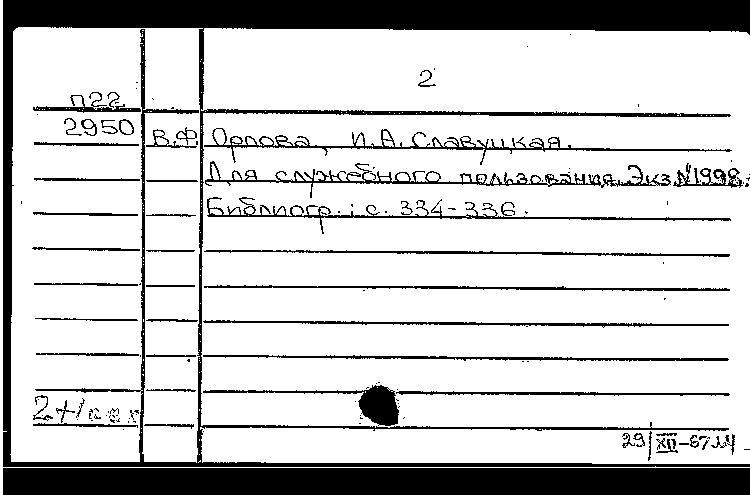 2
п22
2950 В.Ф Орлова, И.А. Славуцкая.
Для служебного пользования. Экз.№1998.
Библиогр.: с. 334-336.
2+1
29/XII-67